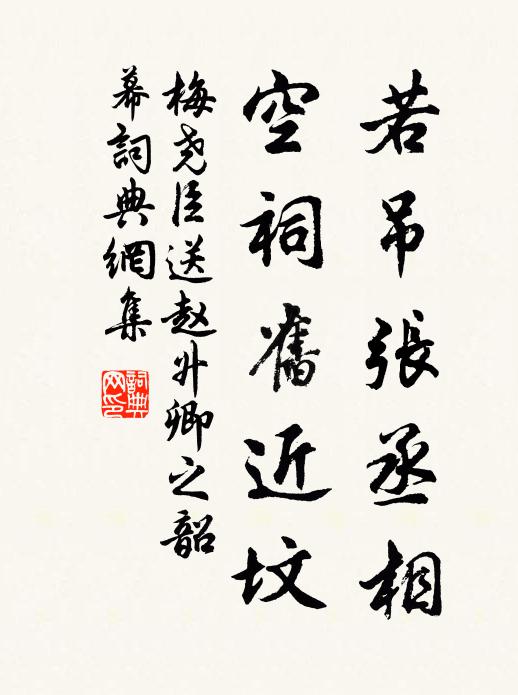 若吊張丞相
空祠舊近坟
梅尧臣送赵升卿之韶
幕詞典網集
詞典
网印